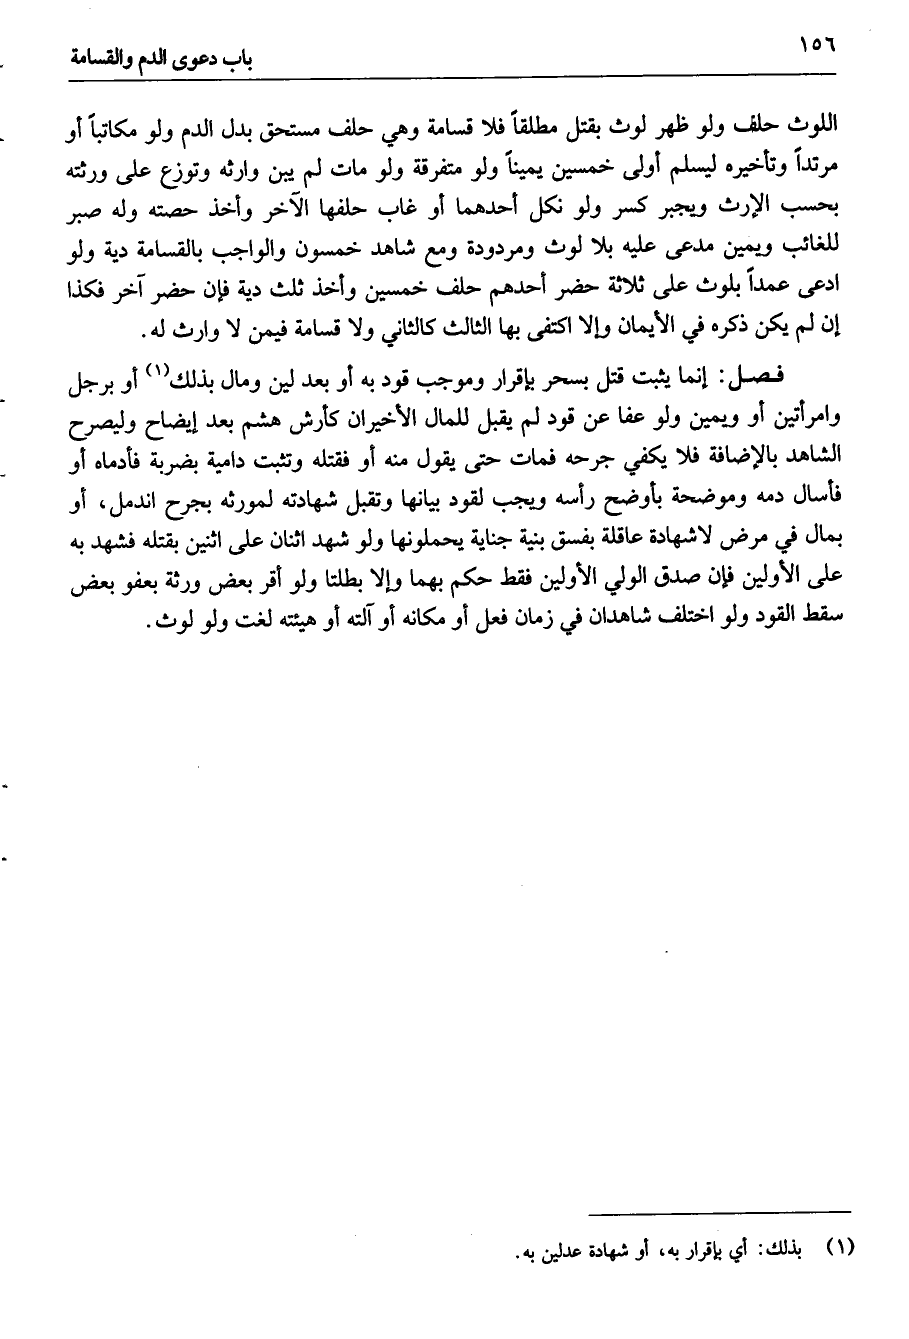 ١٥٦
باب دعوى الدم والقسامة
اللوث حلف ولو ظهر لوث بقتل مطلقاً فلا قسامة وهي حلف مستحق بدل الدم ولو مكاتباً أو
مرتداً وتأخيره ليسلم أولى خمسين يميناً ولو متفرقة ولو مات لم يبن وارثه وتوزع على ورثته
بحسب الإرث ويجبر كسر ولو نكل أحدهما أو غاب حلفها الآخر وأخذ حصته وله صبر
للغائب ويمين مدعى عليه بلا لوث ومردودة ومع شاهد خمسون والواجب بالقسامة دية ولو
ادعى عمداً بلوث على ثلاثة حضر أحدهم حلف خمسين وأخذ ثلث دية فإن حضر آخر فكذا
إن لم يكن ذكره في الأيمان وإلا اكتفى بها الثالث كالثاني ولا قسامة فيمن لا وارث له.
فـصـل: إنما يثبت قتل بسحر بإقرار وموجب قود به أو بعد لين ومال بذلك(١) أو برجل
وامرأتين أو ويمين ولو عفا عن قود لم يقبل للمال الأخيران كأرش هشم بعد إيضاح وليصرح
الشاهد بالإضافة فلا يكفي جرحه فمات حتى يقول منه أو فقتله وتثبت دامية بضربة فأدماه أو
فأسال دمه وموضحة بأوضح رأسه ويجب لقود بيانها وتقبل شهادته لمورثه بجرح اندمل، أو
بمال في مرض لاشهادة عاقلة بفسق بنية جناية يحملونها ولو شهد اثنان على اثنين بقتله فشهد به
على الأولين فإن صدق الولي الأولين فقط حكم بهما وإلا بطلتا ولو أقر بعض ورثة بعفو بعض
سقط القود ولو اختلف شاهدان في زمان فعل أو مكانه أو آلته أو هيئته لغت ولو لوث.
(١) بذلك: أي بإقرار به، أو شهادة عدلين به.